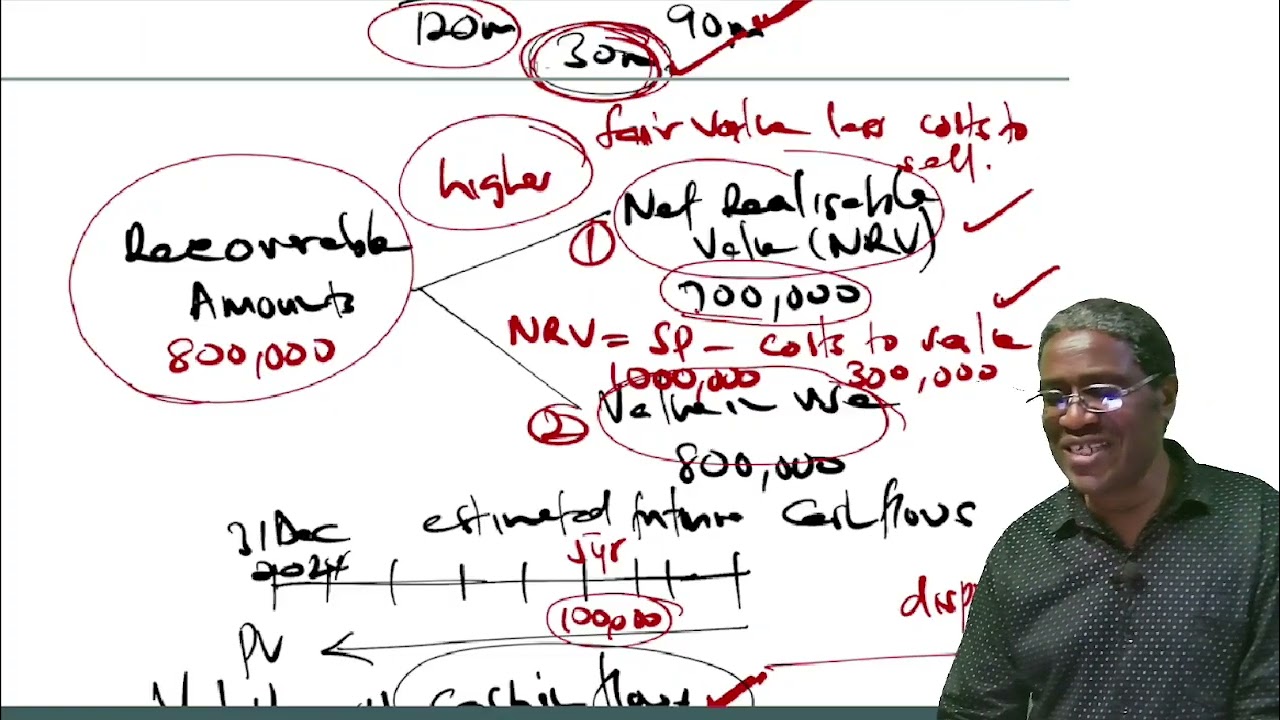 120m
30m
90m
fair value less costs to
sell.
higher
① Net Realisable
Value (NRV)
700,000
Recoverable
Amounts
800,000
NRV = SP - costs to
1000,000 300,000
② Value in Use
800,000
31 Dec
2024
estimated future cashflows
100,000
PV
disp
cash in flows